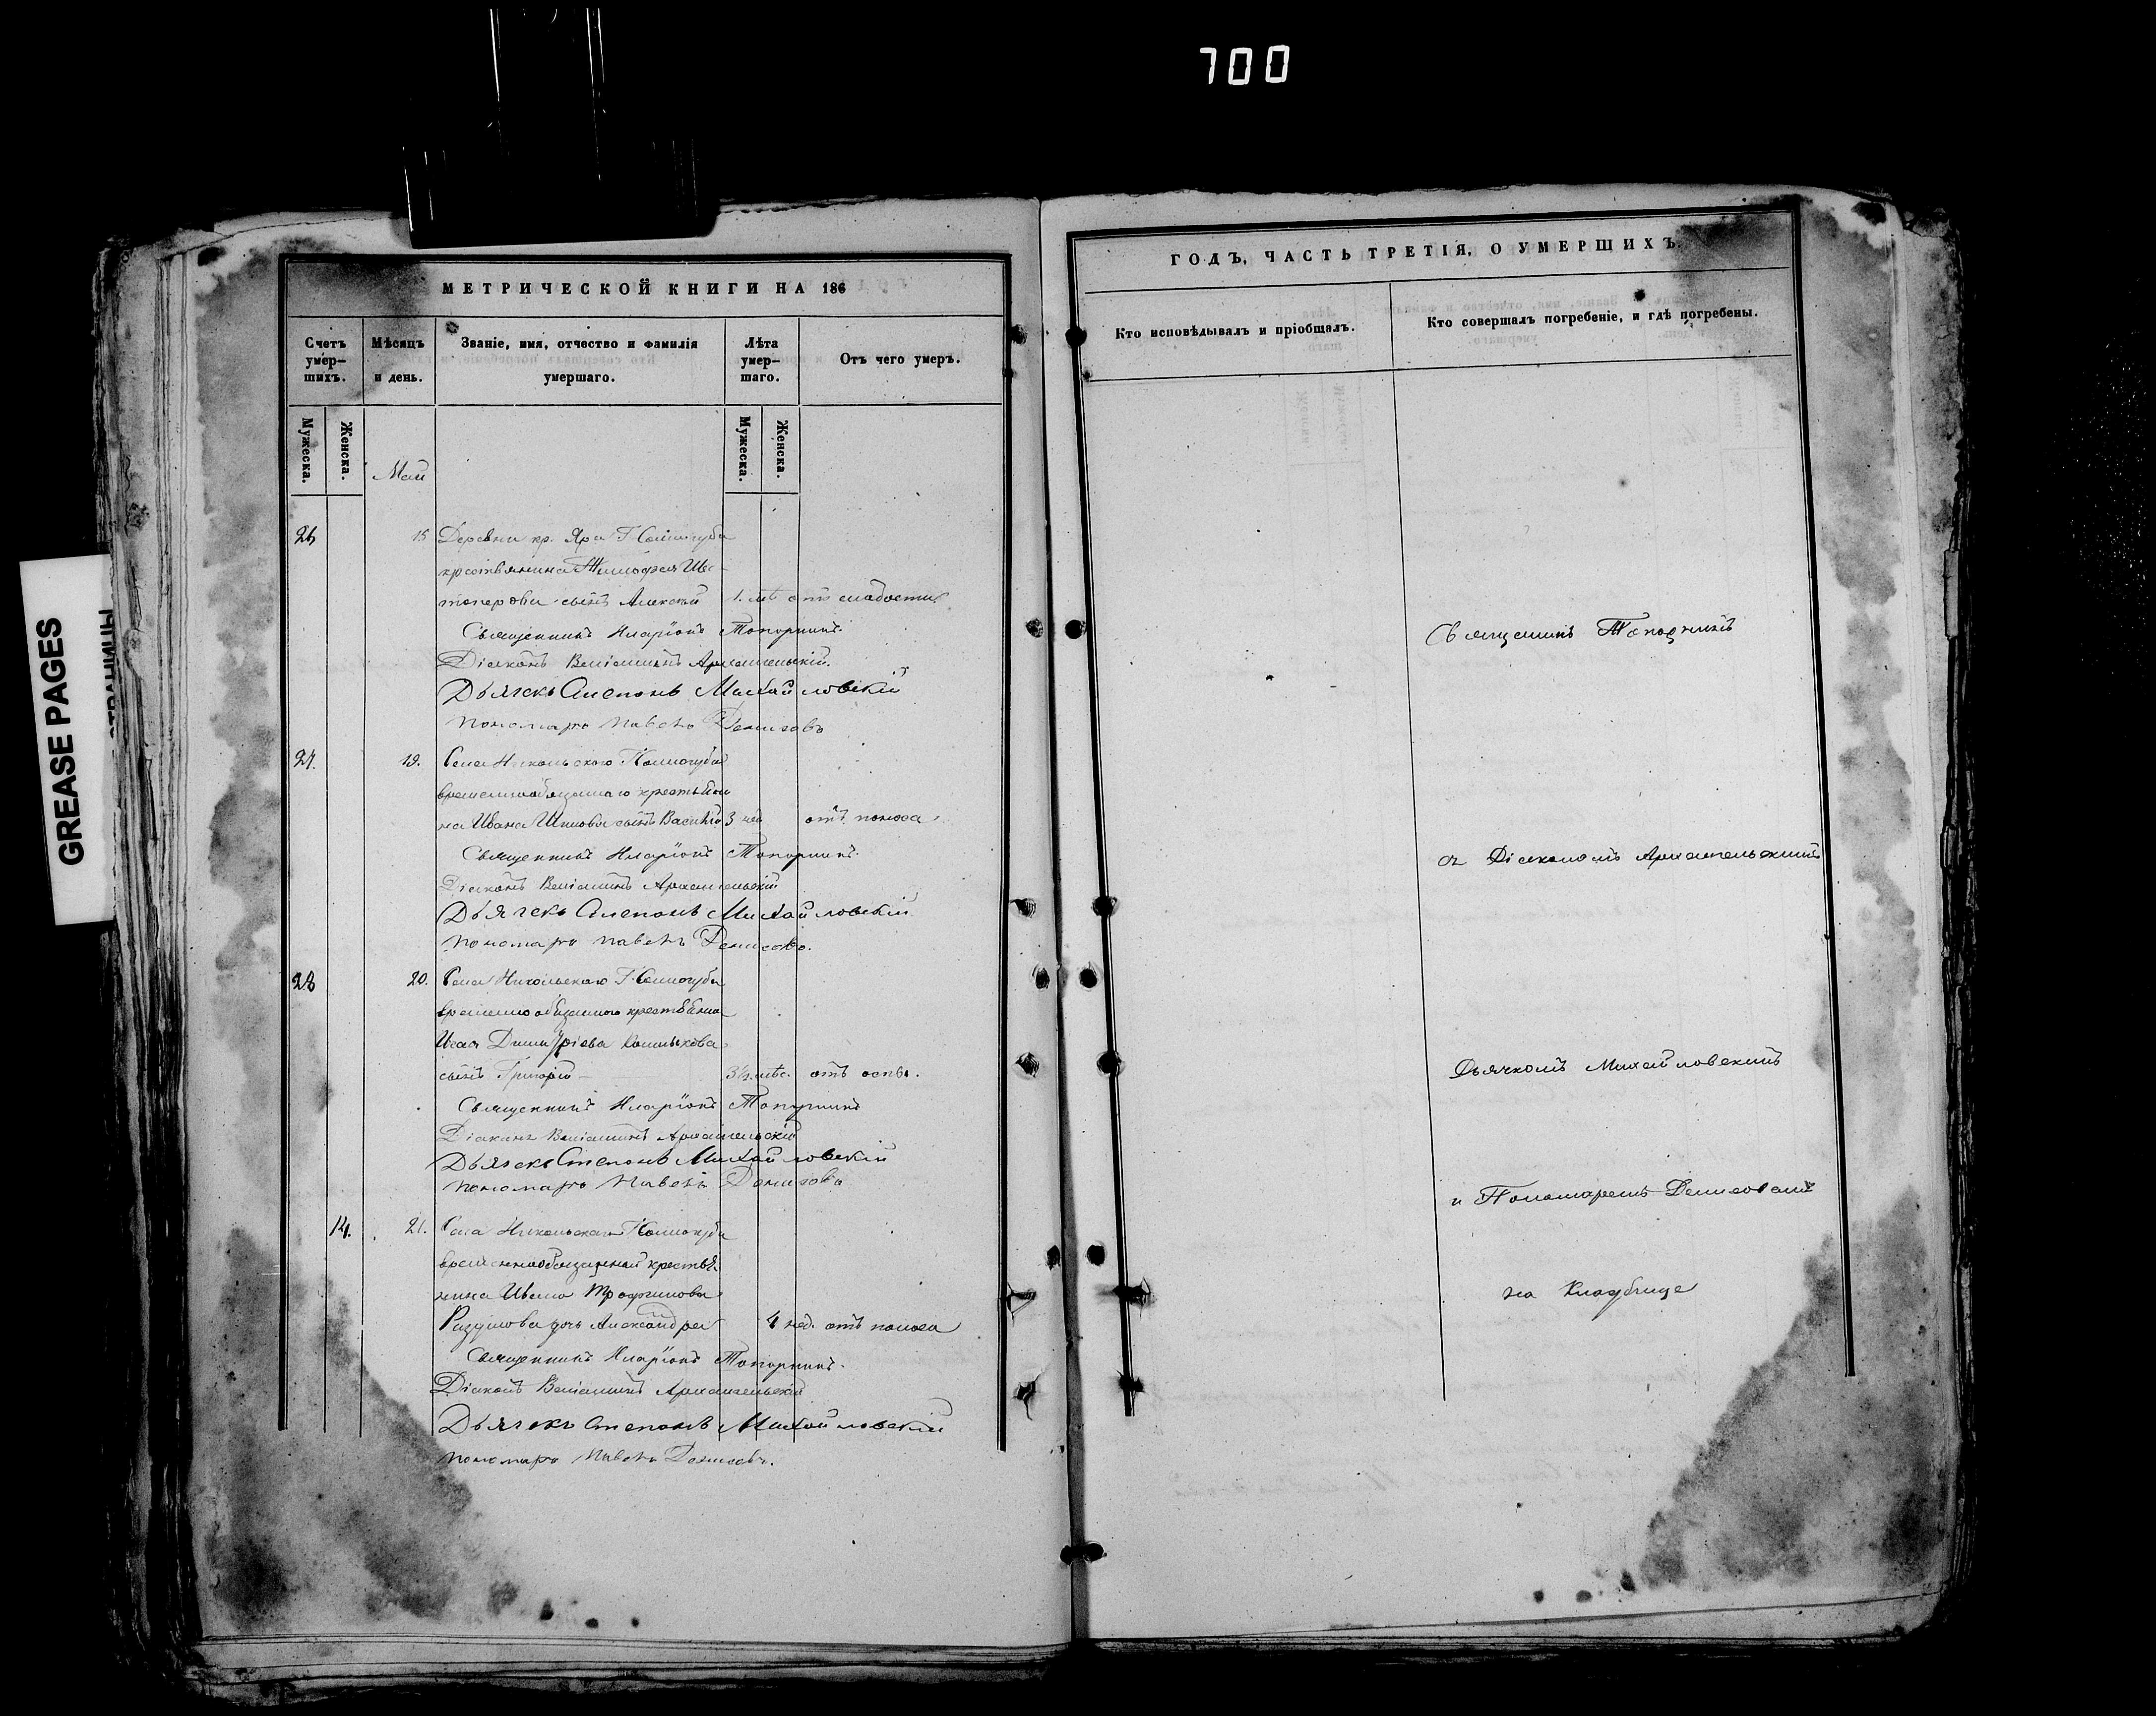 700
GREASE PAGES
СТРАНИЦЫ
МЕТРИЧЕСКОЙ КНИГИ НА 186
Счетъ умер-шихъ.
Мѣсяцъ и день.
Званіе, имя, отчество и фамилія умершаго.
Лѣта умер-шаго.
Отъ чего умеръ.
Мужеска.
Женска.
Мужеска.
Женска.
Май
26 15 Деревни кр. Яра
крестьянина Тимофея
сынъ Алексѣй отъ слабости
Священникъ Иларіонъ Топорнинъ.
Діаконъ Веніаминъ Архангельскій.
Дьячекъ Степанъ Михайловскій
Пономарь Павелъ Денисовъ
27. 19. Села Никольского
временнообязаннаго крестьяни
на Ивана сынъ Василій 3 нед отъ поноса
Священникъ Иларіонъ Топорнинъ.
Діаконъ Веніаминъ Архангельскій
Дьячекъ Степанъ Михайловскій
Пономарь Павелъ Денисовъ.
28 20. Села Никольскаго
временнообязаннаго крестьянина
Исая Димитріева
сынъ Григорій 3½ мѣс. отъ оспы.
Священникъ Иларіонъ Топорнинъ
Діаконъ Веніаминъ Архангельскій
Дьячекъ Степанъ Михайловскій
Пономарь Павелъ Денисовъ
14. 21. Села Никольскаго
временнообязанный крестья
нина Ивана Трофимова
Разумова дочь Александра 4 нед. отъ поноса
Священникъ Иларіонъ Топорнинъ.
Діаконъ Веніаминъ Архангельскій
Дьячекъ Степанъ Михайловскій
Пономарь Павелъ Денисовъ.
ГОДЪ, ЧАСТЬ ТРЕТІЯ, О УМЕРШИХЪ.
Кто исповѣдывалъ и пріобщалъ.
Кто совершалъ погребеніе, и гдѣ погребены.
Священникъ Топорнинъ
съ Діакономъ Архангельскимъ
Дьячкомъ Михайловскимъ
и Пономаремъ Денисовымъ
на Кладбище